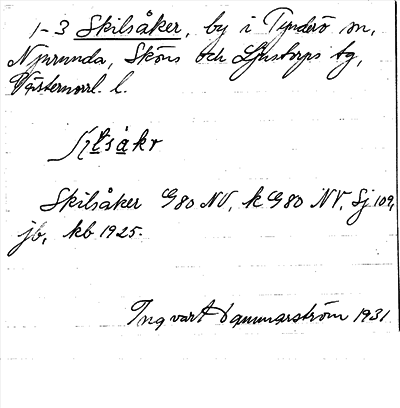 1-3 Skilsåker, by i Tynderö sn,
Njurunda, Sköns och Ljustorps tg,
Västernorrl. l.
Skilsåker G80 NV, k G80 NV, Sj 109,
jb, kb 1925.
Ingvart 1931